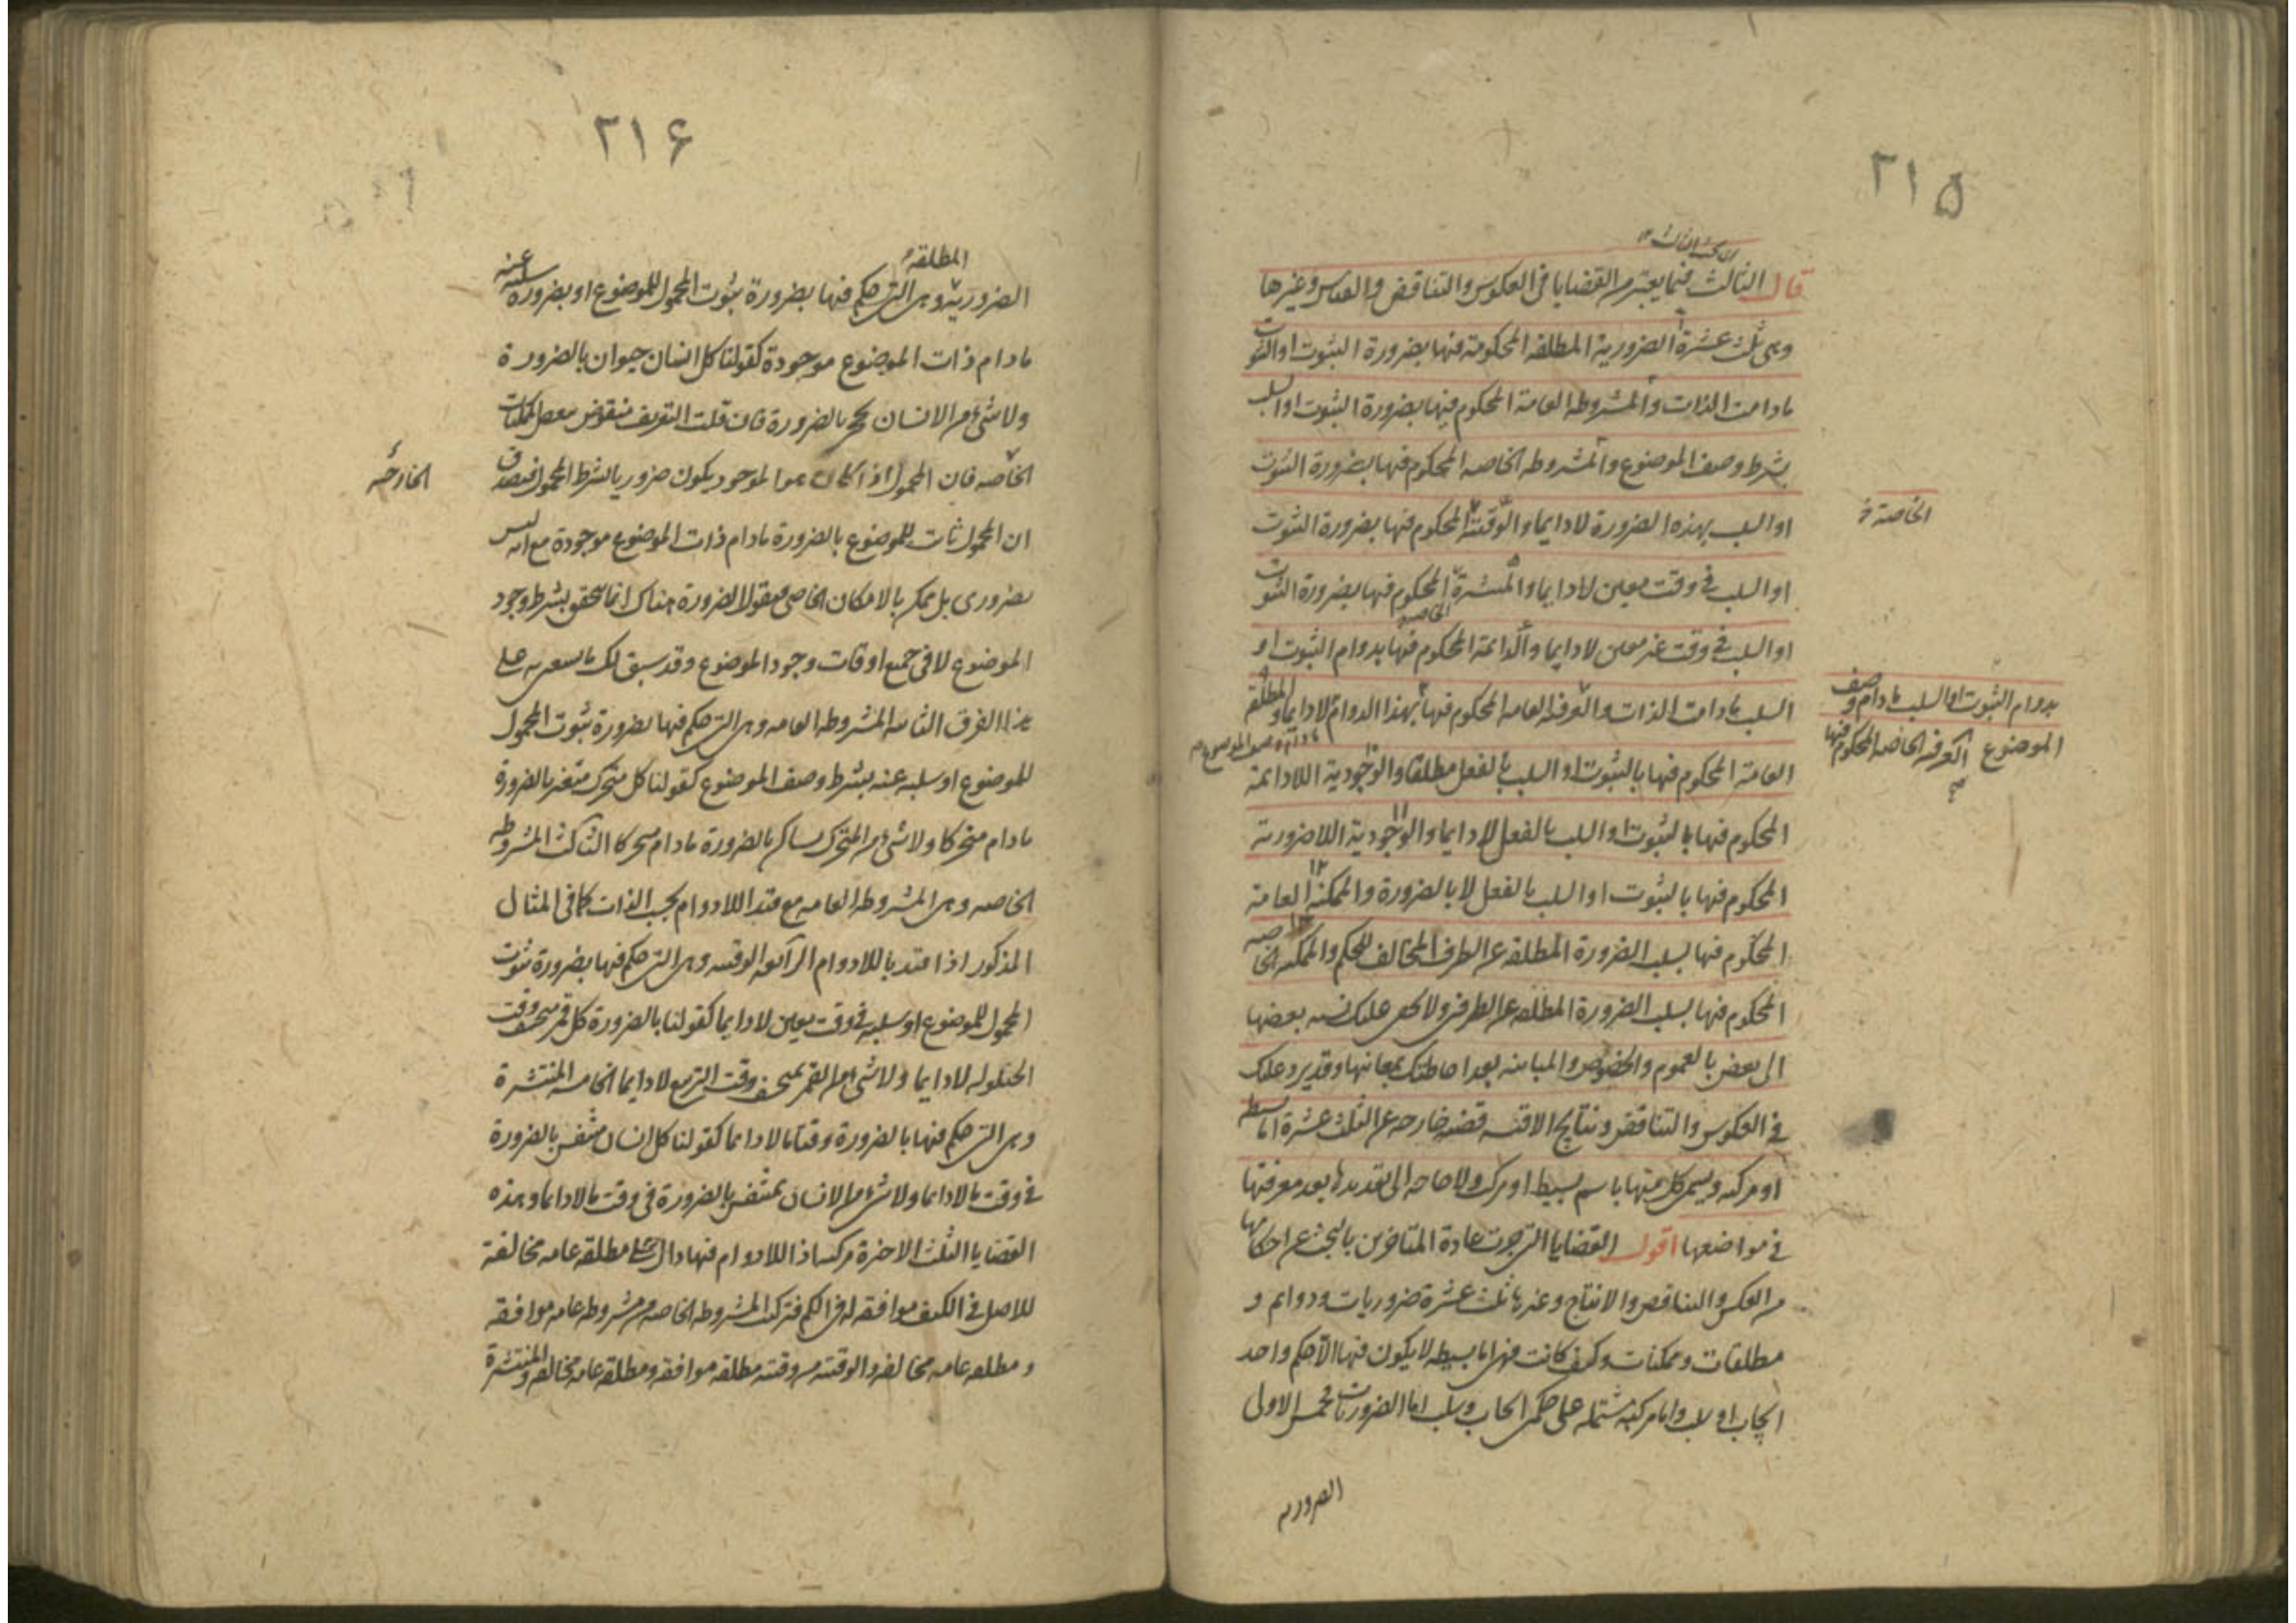 ٢١٥
قال الثالث فيما يعتبر من القضايا فى العكوس والتناقض والقياس وغيرها
وهى ثلث عشرة الضرورية المطلقه المحكومة فيها بضرورة الثبوت او السلب
مادامت الذات والمشروطه العامة المحكوم فيها بضرورة الثبوت او السلب
بشرط وصف الموضوع والمشروطه الخاصه المحكوم فيها بضرورة الثبوت
او السلب بهذه الضرورة لا دايما والوقتية المحكوم فيها بضرورة الثبوت
الخاصة
او السلب فى وقت معين لا دايما والمنتشرة المحكوم فيها بضرورة الثبوت
او السلب فى وقت غير معين لا دايما والدائمة المحكوم فيها بدوام الثبوت او
السلب مادامت الذات والعرفيه العامه المحكوم فيها بهذا الدوام لا دايما والمطلقة
بدوام الثبوت او السلب مادام وصف
الموضوع والعرفيه الخاصه المحكوم فيها
العامة المحكوم فيها بالثبوت او السلب بالفعل مطلقا والوجودية اللادائمة
المحكوم فيها بالثبوت او السلب بالفعل لا دايما والوجودية اللاضرورية
المحكوم فيها بالثبوت او السلب بالفعل لا بالضرورة والممكنة العامة
المحكوم فيها بسلب الضرورة المطلقه عن الطرف المخالف للحكم والممكنه الخاصه
المحكوم فيها بسلب الضرورة المطلقه عن الطرفين ولا يخفى عليك نسبه بعضها
الى بعض بالعموم والخصوص والمباينه بعد احاطتك بمعانيها وقد يرد عليك
فى العكوس والتناقض ونتايج الاقيسه قضيه خارجه عن الثلث عشرة اما بسيطه
او مركبه ويسمى كل منها باسم بسيط او مركب ولا حاجه الى تعديدها بعد معرفتها
فى مواضعها اقول القضايا التى جرت عادة المتاخرين بالبحث عن احكامها
من العكس والتناقض والانتاج وغيرها ثلث عشرة ضروريات ودوايم و
مطلقات وممكنات وكيف كانت فهى اما بسيطه لا يكون فيها الا حكم واحد
ايجاب او سلب واما مركبة مشتمله على حكمى ايجاب وسلب اما الضروريات فخمس الاولى
الضروريه
٢١۶
الضرورية المطلقه وهى التى حكم فيها بضرورة ثبوت المحمول للموضوع او بضرورة سلبه عنه
مادام ذات الموضوع موجودة كقولنا كل انسان حيوان بالضرورة
ولا شئ من الانسان بحجر بالضرورة فان قلت التعريف منقوض ببعض الممكنات
الخاصه فان المحمول اذا كان هو الموجود يكون ضروريا بشرط المحمول فيصدق
الخارجه
ان المحمول ثابت للموضوع بالضرورة مادام ذات الموضوع موجودة مع انه ليس
بضرورى بل ممكن بالامكان الخاص فيقول الضرورة هناك انما تتحقق بشرط وجود
الموضوع لا فى جميع اوقات وجود الموضوع وقد سبق لك على
هذا الفرق الثانيه المشروطه العامه وهى التى حكم فيها بضرورة ثبوت المحمول
للموضوع او سلبه عنه بشرط وصف الموضوع كقولنا كل متحرك متغير بالضرورة
مادام متحركا ولا شئ من المتحرك بساكن بالضرورة مادام متحركا الثالث المشروطه
الخاصه وهى المشروطه العامه مع قيد اللادوام بحسب الذات كما فى المثال
المذكور اذا قيد باللادوام الرابعه الوقتيه وهى التى حكم فيها بضرورة ثبوت
المحمول للموضوع او سلبه فى وقت معين لا دايما كقولنا بالضرورة كل قمر منخسف وقت
الحيلوله لا دايما ولا شئ من القمر بمنخسف وقت التربيع لا دايما الخامسه المنتشرة
وهى التى حكم فيها بالضرورة وقتا ما لا دايما كقولنا كل انسان متنفس بالضرورة
فى وقت ما لا دايما ولا شئ من الانسان بمتنفس بالضرورة فى وقت ما لا دايما وهذه
القضايا الثلث الاخيرة مركبه اذ اللادوام فيها دال على مطلقه عامه مخالفة
للاصل فى الكيف موافقه له فى الكم فتركب المشروطه الخاصه من مشروطه عامه موافقه
ومطلقه عامه مخالفه والوقتيه من وقتيه مطلقه موافقه ومطلقه عامه مخالفه والمنتشرة